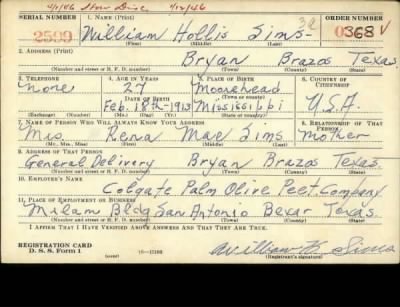 SERIAL NUMBER 1. NAME (Print) ORDER NUMBER
2599 William Hollis Sims 368 V
(First) (Middle) (Last)
2. ADDRESS (Print)
Bryan Brazos Texas
(Number and street or R. F. D. number) (Town) (County) (State)
3. TELEPHONE 4. AGE IN YEARS 5. PLACE OF BIRTH 6. COUNTRY OF CITIZENSHIP
None 27 Moorehead
DATE OF BIRTH
Feb. 18th 1913 Mississibbi U.S.A.
(Exchange) (No.) (Mo.) (Day) (Yr.) (Town or county) (State or country)
7. NAME OF PERSON WHO WILL ALWAYS KNOW YOUR ADDRESS 8. RELATIONSHIP OF THAT PERSON
Mrs. Rena Mae Sims Mother
(Mr., Mrs., Miss) (First) (Middle) (Last)
9. ADDRESS OF THAT PERSON
General Delivery Bryan Brazos Texas
(Number and street or R. F. D. number) (Town) (County) (State)
10. EMPLOYER'S NAME
Colgate Palm Olive Peet Company
11. PLACE OF EMPLOYMENT OR BUSINESS
Milam Bldg San Antonio Bexar Texas
(Number and street or R. F. D. number) (Town) (County) (State)
I AFFIRM THAT I HAVE VERIFIED ABOVE ANSWERS AND THAT THEY ARE TRUE.
REGISTRATION CARD
D. S. S. Form 1 William H. Sims
(Registrant's signature)